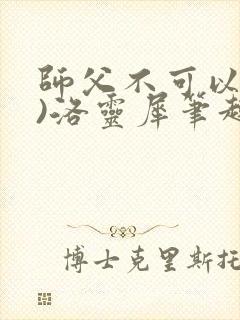 師父不可以
)洛靈犀筆
博士克里斯托